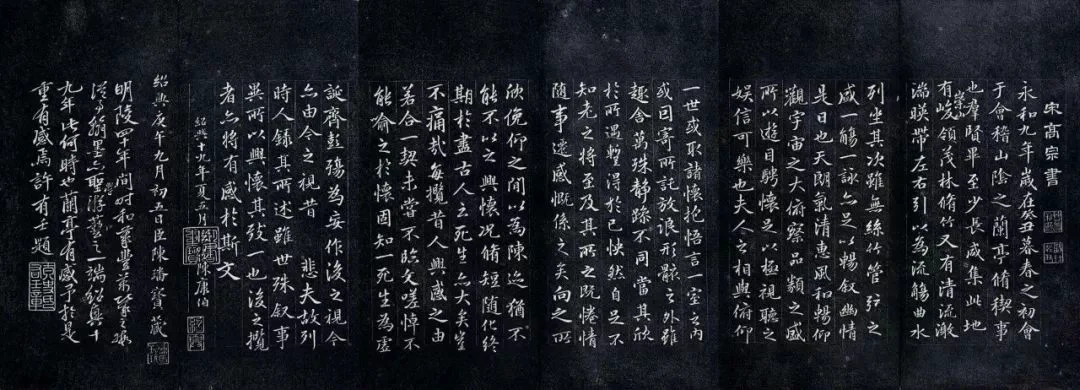 宋高宗書
永和九年歲在癸丑暮春之初會
于會稽山陰之蘭亭脩稧事
也羣賢畢至少長咸集此地
有崇山峻領茂林脩竹又有清流激
湍暎帶左右引以為流觴曲水
列坐其次雖無絲竹管弦之
盛一觴一詠亦足以暢叙幽情
是日也天朗氣清惠風和暢仰
觀宇宙之大俯察品類之盛
所以遊目騁懷足以極視聽之
娱信可樂也夫人之相與俯仰
一世或取諸懷抱悟言一室之内
或因寄所託放浪形骸之外雖
趣舍萬殊靜躁不同當其欣
於所遇蹔得於己怏然自足不
知老之將至及其所之既惓情
隨事遷感慨係之矣向之所
欣俛仰之間以為陳迹猶不
能不以之興懷況脩短隨化終
期於盡古人云死生亦大矣豈
不痛哉每攬昔人興感之由
若合一契未嘗不臨文嗟悼不
能喻之於懷固知一死生為虛
誕齊彭殤為妄作後之視今
亦由今之視昔 悲夫故列
時人錄其所述雖世殊叙事
異所以興懷其致一也後之攬
者亦將有感於斯文
紹興十九年夏五月 陳康伯
紹興庚午九月初五日臣陳
明陵四十年間時和
翰墨
九年此何時也蘭亭有感予於是
重有感焉許有壬題